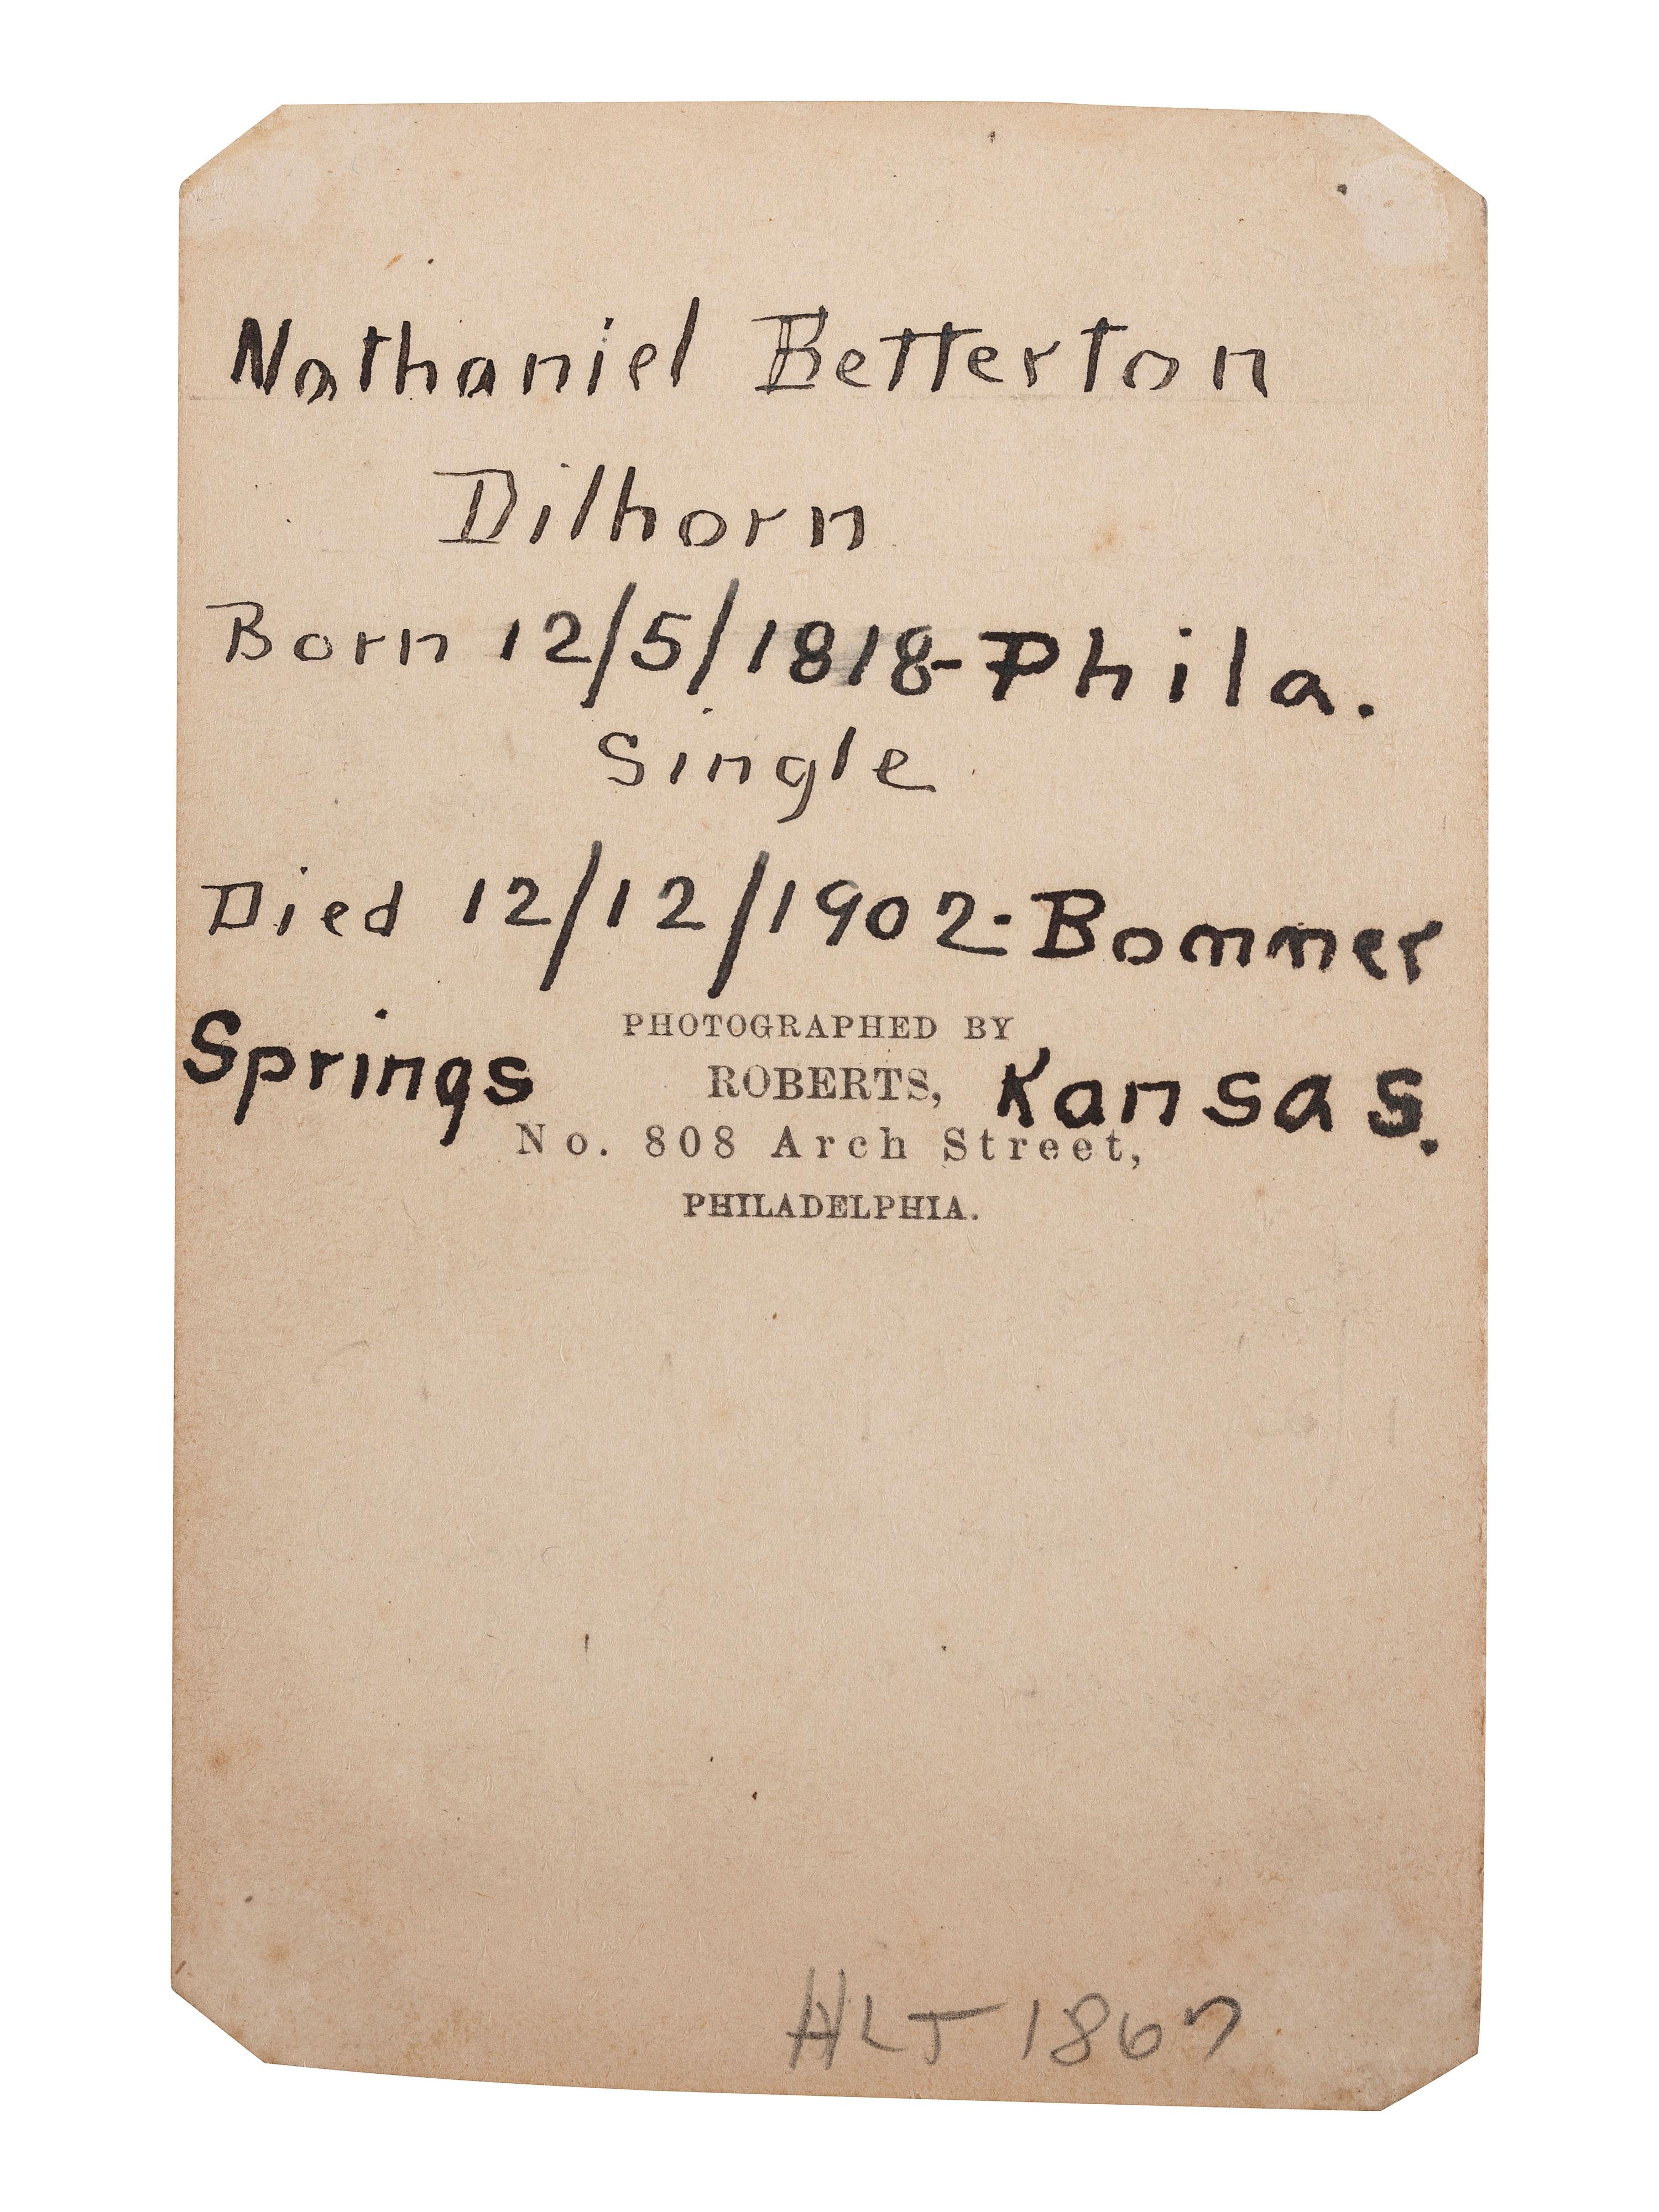 Nathaniel Betterton
Dilhorn
Born 12/5/1818-Phila.
Single
Died 12/12/1902-Bonner
Springs Kansas.
PHOTOGRAPHED BY
ROBERTS,
No. 808 Arch Street,
PHILADELPHIA.
HLJ 1867